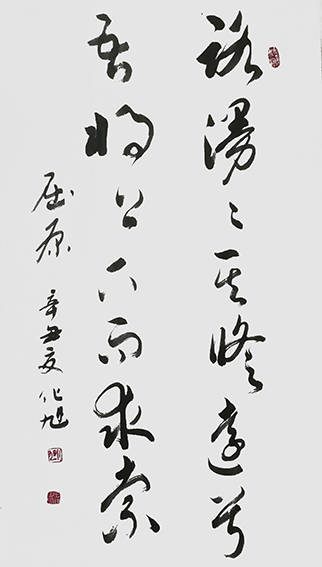 路漫〻其修遠兮
吾将上下而求索
屈原 辛丑夏 化旭